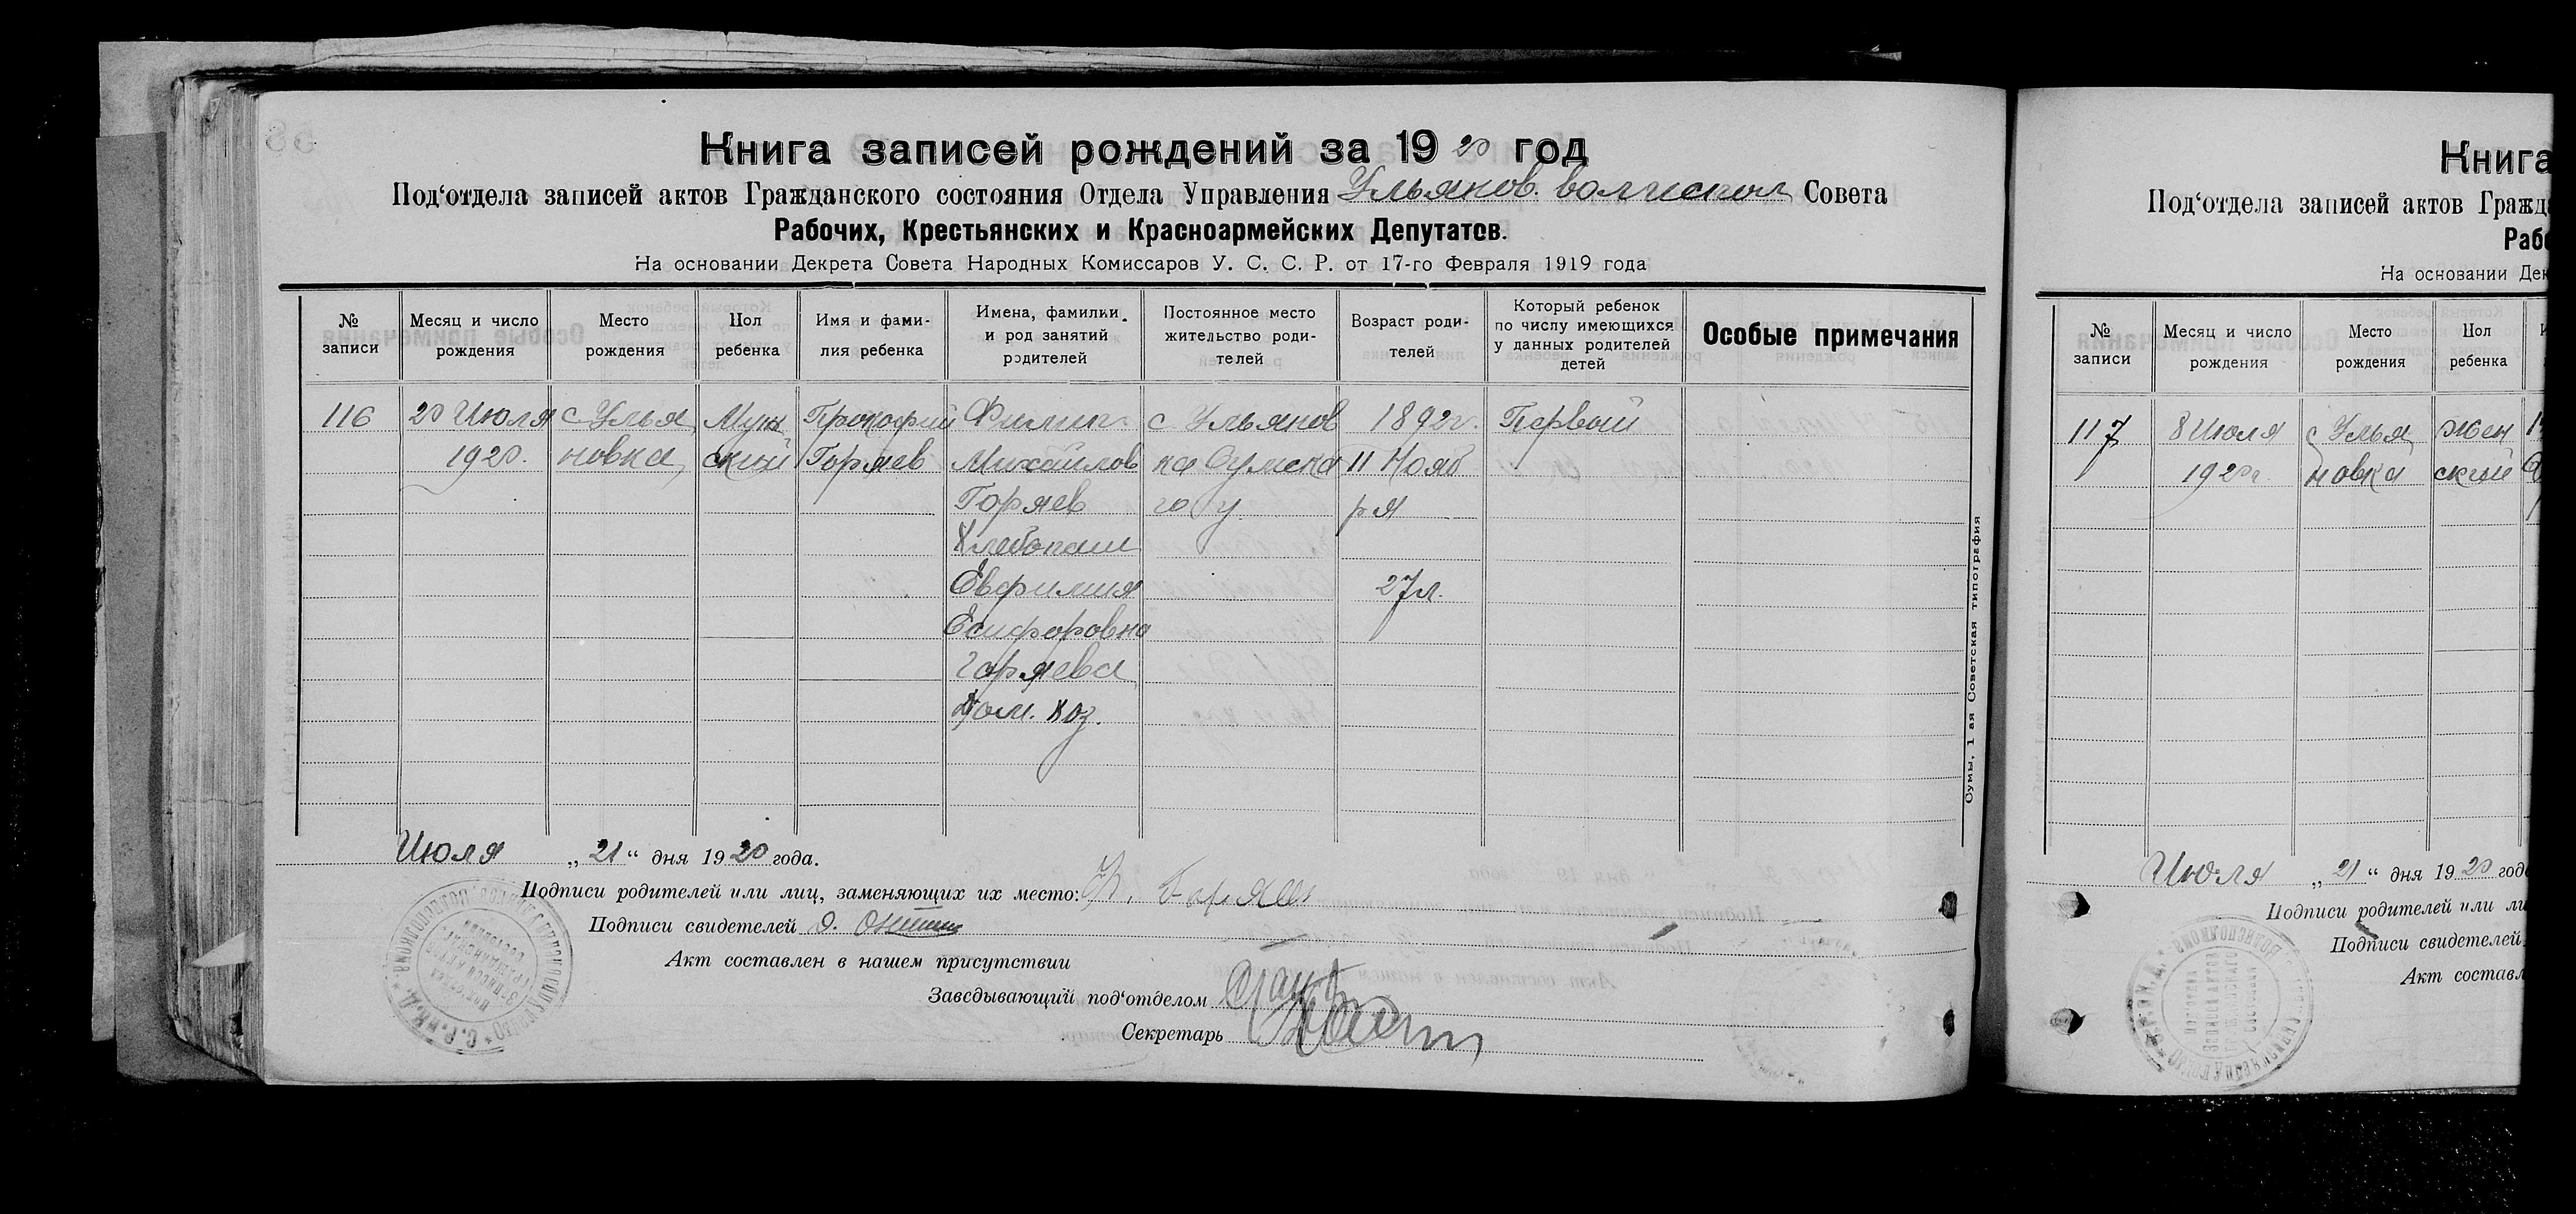 Книга записей рождений за 1920 год
Под'отдела записей актов Гражданского состояния Отдела Управления Ульянов. волиспол Совета
Рабочих, Крестьянских и Красноармейских Депутатов.
На основании Декрета Совета Народных Комиссаров У. С. С. Р. от 17-го Февраля 1919 года
№ записи
Месяц и число рождения
Место рождения
Пол ребенка
Имя и фами-
лия ребенка
Имена, фамилки
и род занятий
родителей
Постоянное место
жительство роди-
телей
Возраст роди-
телей
Который ребенок
по числу имеющихся
у данных родителей
детей
Особые примечания
116 20 Июля с Улья Муж Прокофий Филип. с Ульянов 1892г. Первый
1920. новка ский Горяев Михайлов ка Сумска 11 Нояб
Горяев го у. ря
Хлебопаш
Евфимия 27л.
Горяева
Дом. хоз.
Июля „21“ дня 1920 года.
Подписи родителей или лиц, заменяющих их место:
Подписи свидетелей
Акт составлен в нашем присутствии
Заведывающий под'отделом
Секретарь
Сумы, 1 ая Советская типография
Книга
Под'отдела записей актов Гражд
Раб
На основании Дек
№ записи
Месяц и число рождения
Место рождения
Пол ребенка
117 8 Июля с Улья Жен
1920г. новка ский
Июля „21“ дня 1920 год
Подписи родителей или ли
Подписи свидетелей
Акт составл